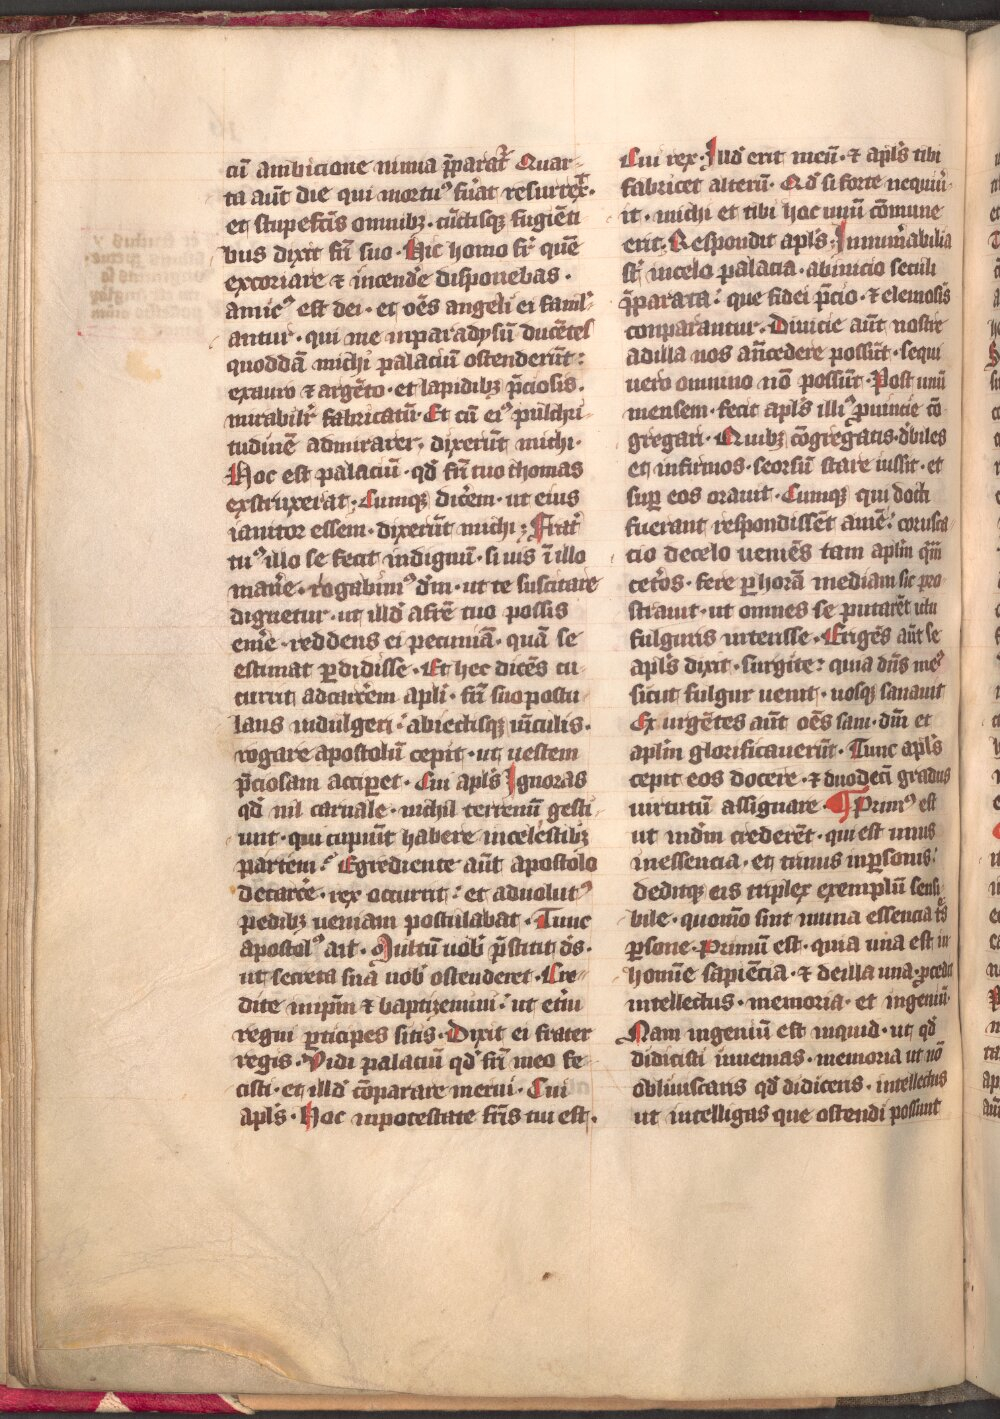 cū ambicione nimia p̄parat᷑ Quar-
ta aūt die qui mortuꝰ fuͣat resurrex̄.
et stupefc̄is omnibꝫ. cūctisqꝫ fugiēti
bus dixit fr̄i suo. Hic homo fr̄ quē
excoriare ⁊ incende᷑ disponebas.
amicꝰ est dei. et oēs angeli ei famľ-
antur. qui me inparadysū ducētes
quoddā michi palaciū ostenderūt:
exauro ⁊ argēto. et lapidibꝫ p̄ciosis.
mirabilr̄ fabricatū. Et cū eiꝰ pulchri-
tudinē admirarer. dixerūt michi.
Hoc est palaciū. qd̄ fr̄ tuo thomas
exstruxerat. Cumqꝫ dicēm. ut eius
ianitor essem. dixerūt michi; Frat᷑
tuꝰ illo se fecit indignū. si uis ī illo
manē᷑. rogabimꝰ dm̄. ut te suscitare
dignetur. ut illd̄ afrē tuo possis
eme᷑. reddens ei pecuniā. quā se
estimat ꝑdidisse. Et hec dicēs cu
currit adcarc̄em apl̄i. fr̄i suo postu
lans indulgeri. abiectisqꝫ uīculis.
rogare apostolū cepit. ut uestem
p̄ciosam acciꝑet. Cui apl̄s Ignoras
qd̄ nil carnale. nichil terrenū gesti
unt. qui cupiūt habere incelestibꝫ
partem: Egrediente aūt apostolo
decarc̄e. rex occurrit: et aduolutꝰ
pedibꝫ ueniam postulabat. Tunc
apostolꝰ ait. Multū uob̄ p̄stitit ds̄.
ut secreta sua uob̄ ostenderet. Cre-
dite inxp̄m ⁊ baptizemini: ut et̄ni
regni ꝑticipes sitis. Dixit ei frater
regis. Vidi palaciū qd̄ fr̄i meo fe-
cisti. et illd̄ cōparare merui. Cui
apl̄s. Hoc inpotestate fr̄is tui est.
Cui rex. Illd̄ erit meū. ⁊ apl̄s tibi
fabricet alterū. Qd̄ si forte nequiū-
it. michi et tibi hoc unū cōmune
erit. Respondit apl̄s; Innum̄abilia
st̄ incelo palacia. abinicio seculi
p̄parata: que fidei p̄cio. ⁊ elemosis
conparantur. Diuicie aūt nostre
adilla nos an̄cedere possūt. sequi
uero omnino nō possūt. Post unū
mensem. fecit apl̄s illiꝰ ꝓuincie cō-
gregari. Quibꝫ cōgregatis. dēbiles
et infirmos. seorsū stare iussit. et
suꝑ eos orauit. Cumqꝫ qui docti
fuerant respondissēt amē. corusca-
cio decelo ueniēs tam apl̄m q̄m
cet̄os. fere ꝑ horā mediam sic pro
strauit. ut omnes se putarēt ictu
fulguris interisse. Erigēs aūt se
apl̄s dixit. surgite: quia dn̄s meꝰ
sicut fulgur uenit. uosqꝫ sanauit
Ex urgētes aūt oēs sani. dm̄ et
apl̄m glorificauerūt. Tunc apl̄s
cepit eos docere. ⁊ duodecī gradus
uirtutū assignare. ¶ Primꝰ est
ut indm̄ crederēt. qui est unus
inessencia. et trinus inꝑsonis.
deditqꝫ eis triplex exemplū sensi-
bile. quomō sint inuna essencia tr̄s
ꝑsone. Primū est. quia una est in
homīe sapiēcia. ⁊ deilla una ꝓcedit
intellectus. memoria. et ingeniū.
Nam ingeniū est inquid. ut qd̄
didicisti inuenias. memoria ut nō
obliuiscaris qd̄ didiceris. intellectus
ut intelligas que ostendi possunt